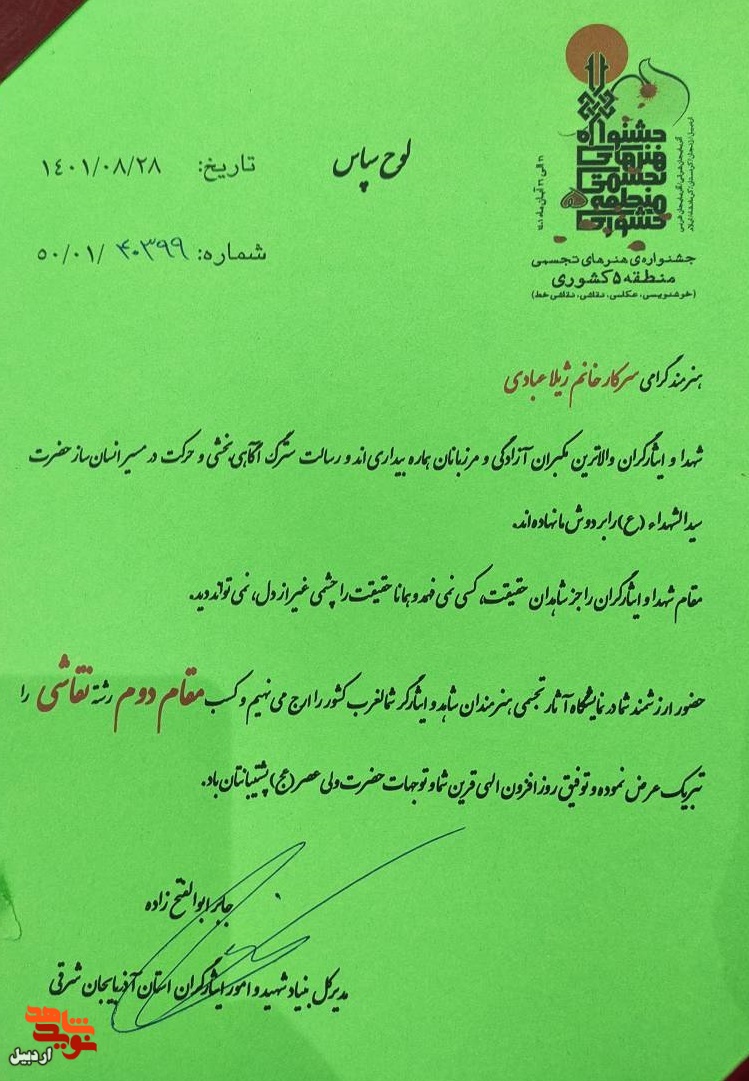 جشنواره
هنرهای
تجسمی
منطقه ۵
کشوری
۲۱ الی ۲۶ آبان ماه ۱۴۰۱
جشنواره‌ی هنرهای تجسمی
منطقه ۵ کشوری
(خوشنویسی، عکاسی، نقاشی، نقاشی خط)
لوح سپاس
تاریخ: ۱۴۰۱/۰۸/۲۸
شماره: ۴۰۳۹۹ /۵۰/۰۱
هنرمند گرامی سرکار خانم ژیلا عبادی
شهدا و ایثارگران والاترین مکبران آزادگی و مرزبانان هماره بیداری اند و رسالت سترگ آگاهی بخشی و حرکت در مسیر انسان ساز حضرت
سیدالشهداء (ع) را بر دوش ما نهاده اند.
مقام شهدا و ایثارگران را جز شاهدان حقیقت، کسی نمی فهمد و همانا حقیقت را چشمی غیر از دل، نمی تواند دید.
حضور ارزشمند شما در نمایشگاه آثار تجسمی هنرمندان شاهد و ایثارگر شمالغرب کشور را ارج می نهیم و کسب مقام دوم رشته نقاشی را
تبریک عرض نموده و توفیق روز افزون الهی قرین شما و توجهات حضرت ولی عصر (عج) پشتیبانتان باد.
جابر ابوالفتح زاده
مدیرکل بنیاد شهید و امور ایثارگران استان آذربایجان شرقی
نوید شاهد
اردبیل